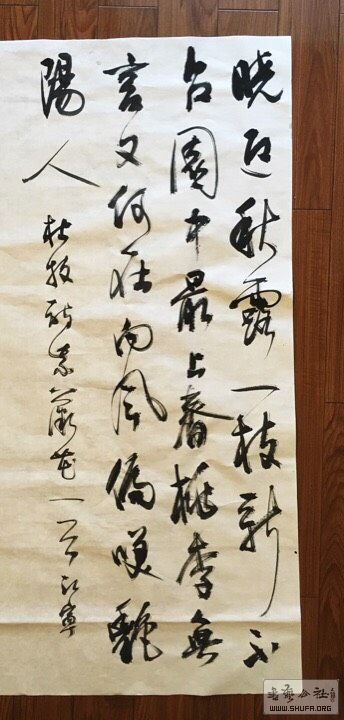 晓迎秋露一枝新不
占園中最上春桃李無
言又何在向風偏咲艷
陽人
杜牧詩紫薇花一首江寧
書法公社
WWW.SHUFA.ORG